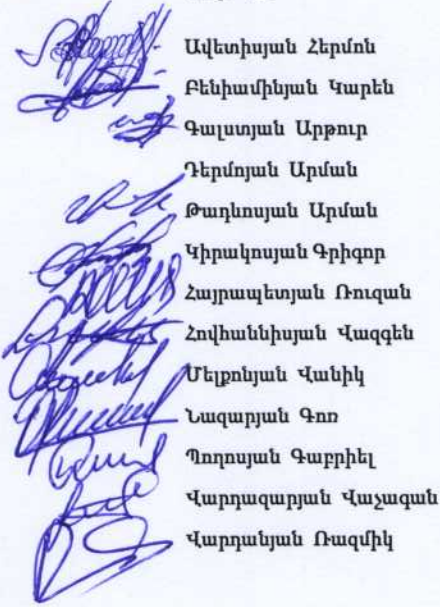 Ավետիսյան Հերմոն
Բենիամինյան Կարեն
Գալստյան Արթուր
Դերմոյան Արման
Թադևոսյան Արման
Կիրակոսյան Գրիգոր
Հայրապետյան Ռուզան
Հովհաննիսյան Վազգեն
Մելքոնյան Վանիկ
Նազարյան Գոռ
Պողոսյան Գաբրիել
Վարդազարյան Վաչագան
Վարդանյան Ռազմիկ